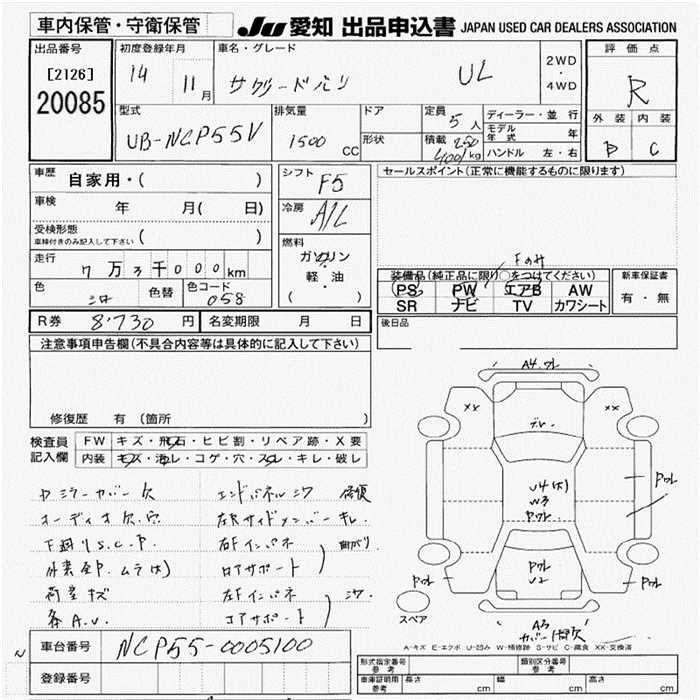 車内保管・守衛保管 JU 愛知 出品申込書 JAPAN USED CAR DEALERS ASSOCIATION
出品番号 初度登録年月 車名・グレード 2WD・4WD 評価点
[2126] 14 11月 サクシードバン UL R
20085
型式 排気量 ドア 定員 5人 ディーラー・並行 外装 内装
UB-NCP55V 1500 CC 形状 積載 250 400/kg モデル年式 年 D C
ハンドル 左・右
車歴 自家用・( ) シフト F5 セールスポイント(正常に機能するものに限ります)
車検 年 月( 日) 冷房 A/C
受検形態 車検付きのみ記入して下さい ( ) 燃料 ガソリン
軽・油
( )
走行 7万3千000km
色 シロ 色替 色コード 058
Fのみ
装備品(純正品に限り○をつけてください) 新車保証書
PS PW エアB AW 有・無
SR ナビ TV カワシート
R券 8,730円 名変期限 月 日 後日品
注意事項申告欄(不具合内容等は具体的に記入して下さい)
修復歴 有 (箇所 )
検査員記入欄 FW キズ・飛石・ヒビ割・リペア跡・X要
内装 キズ・汚レ・コゲ・穴・スレ・キレ・破レ
ミラーカバー欠 エンドパネルシワ 修復
オーディオ欠.穴 左Rサイドメンバーキレ.
下廻りS.C.P. 右Fインパネ 曲がり
外装全P.ムラ(大) コアサポート
荷室キズ 左Fインパネ シワ
各A.U. コアサポート
A4.ワレ
XX XX
U4(大)
W3
Pワレ
Pワレ
Pワレ
U2
Pワレ
Pワレ
A3
カバー欠
スペア
A-キズ E-エクボ U-凹み W-補修跡 S-サビ C-腐食 XX-交換済
車台番号 NCP55-0005100
登録番号
形式指定番号 参考 類別区分番号 参考
車庫証明用 参考 長さ cm 幅 cm 高さ cm